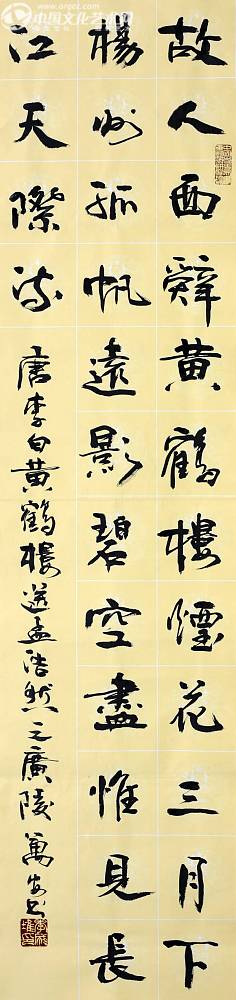 www.orgcc.com
中国文化艺术网
故人西辭黄鶴樓煙花三月下
楊州孤帆遠影碧空盡惟見長
江天際流
唐李白黄鶴樓送孟浩然之廣陵